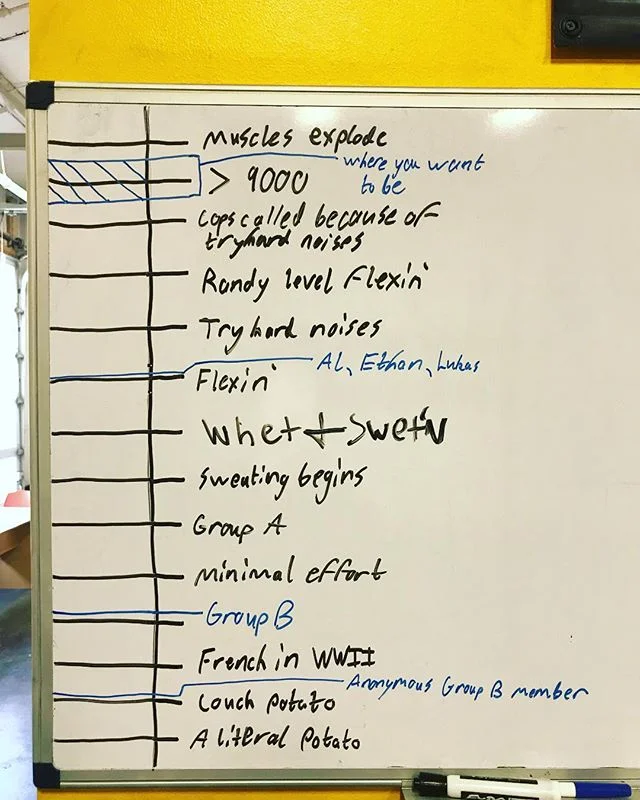 Muscles explode
where you want
to be
> 9000
Cops called because of
tryhard noises
Randy level Flexin'
Tryhard noises
Al, Ethan, Lukas
Flexin'
Whet + Swet'n
Sweating begins
Group A
Minimal effort
Group B
French in WWII
Anonymous Group B member
Couch potato
A literal potato